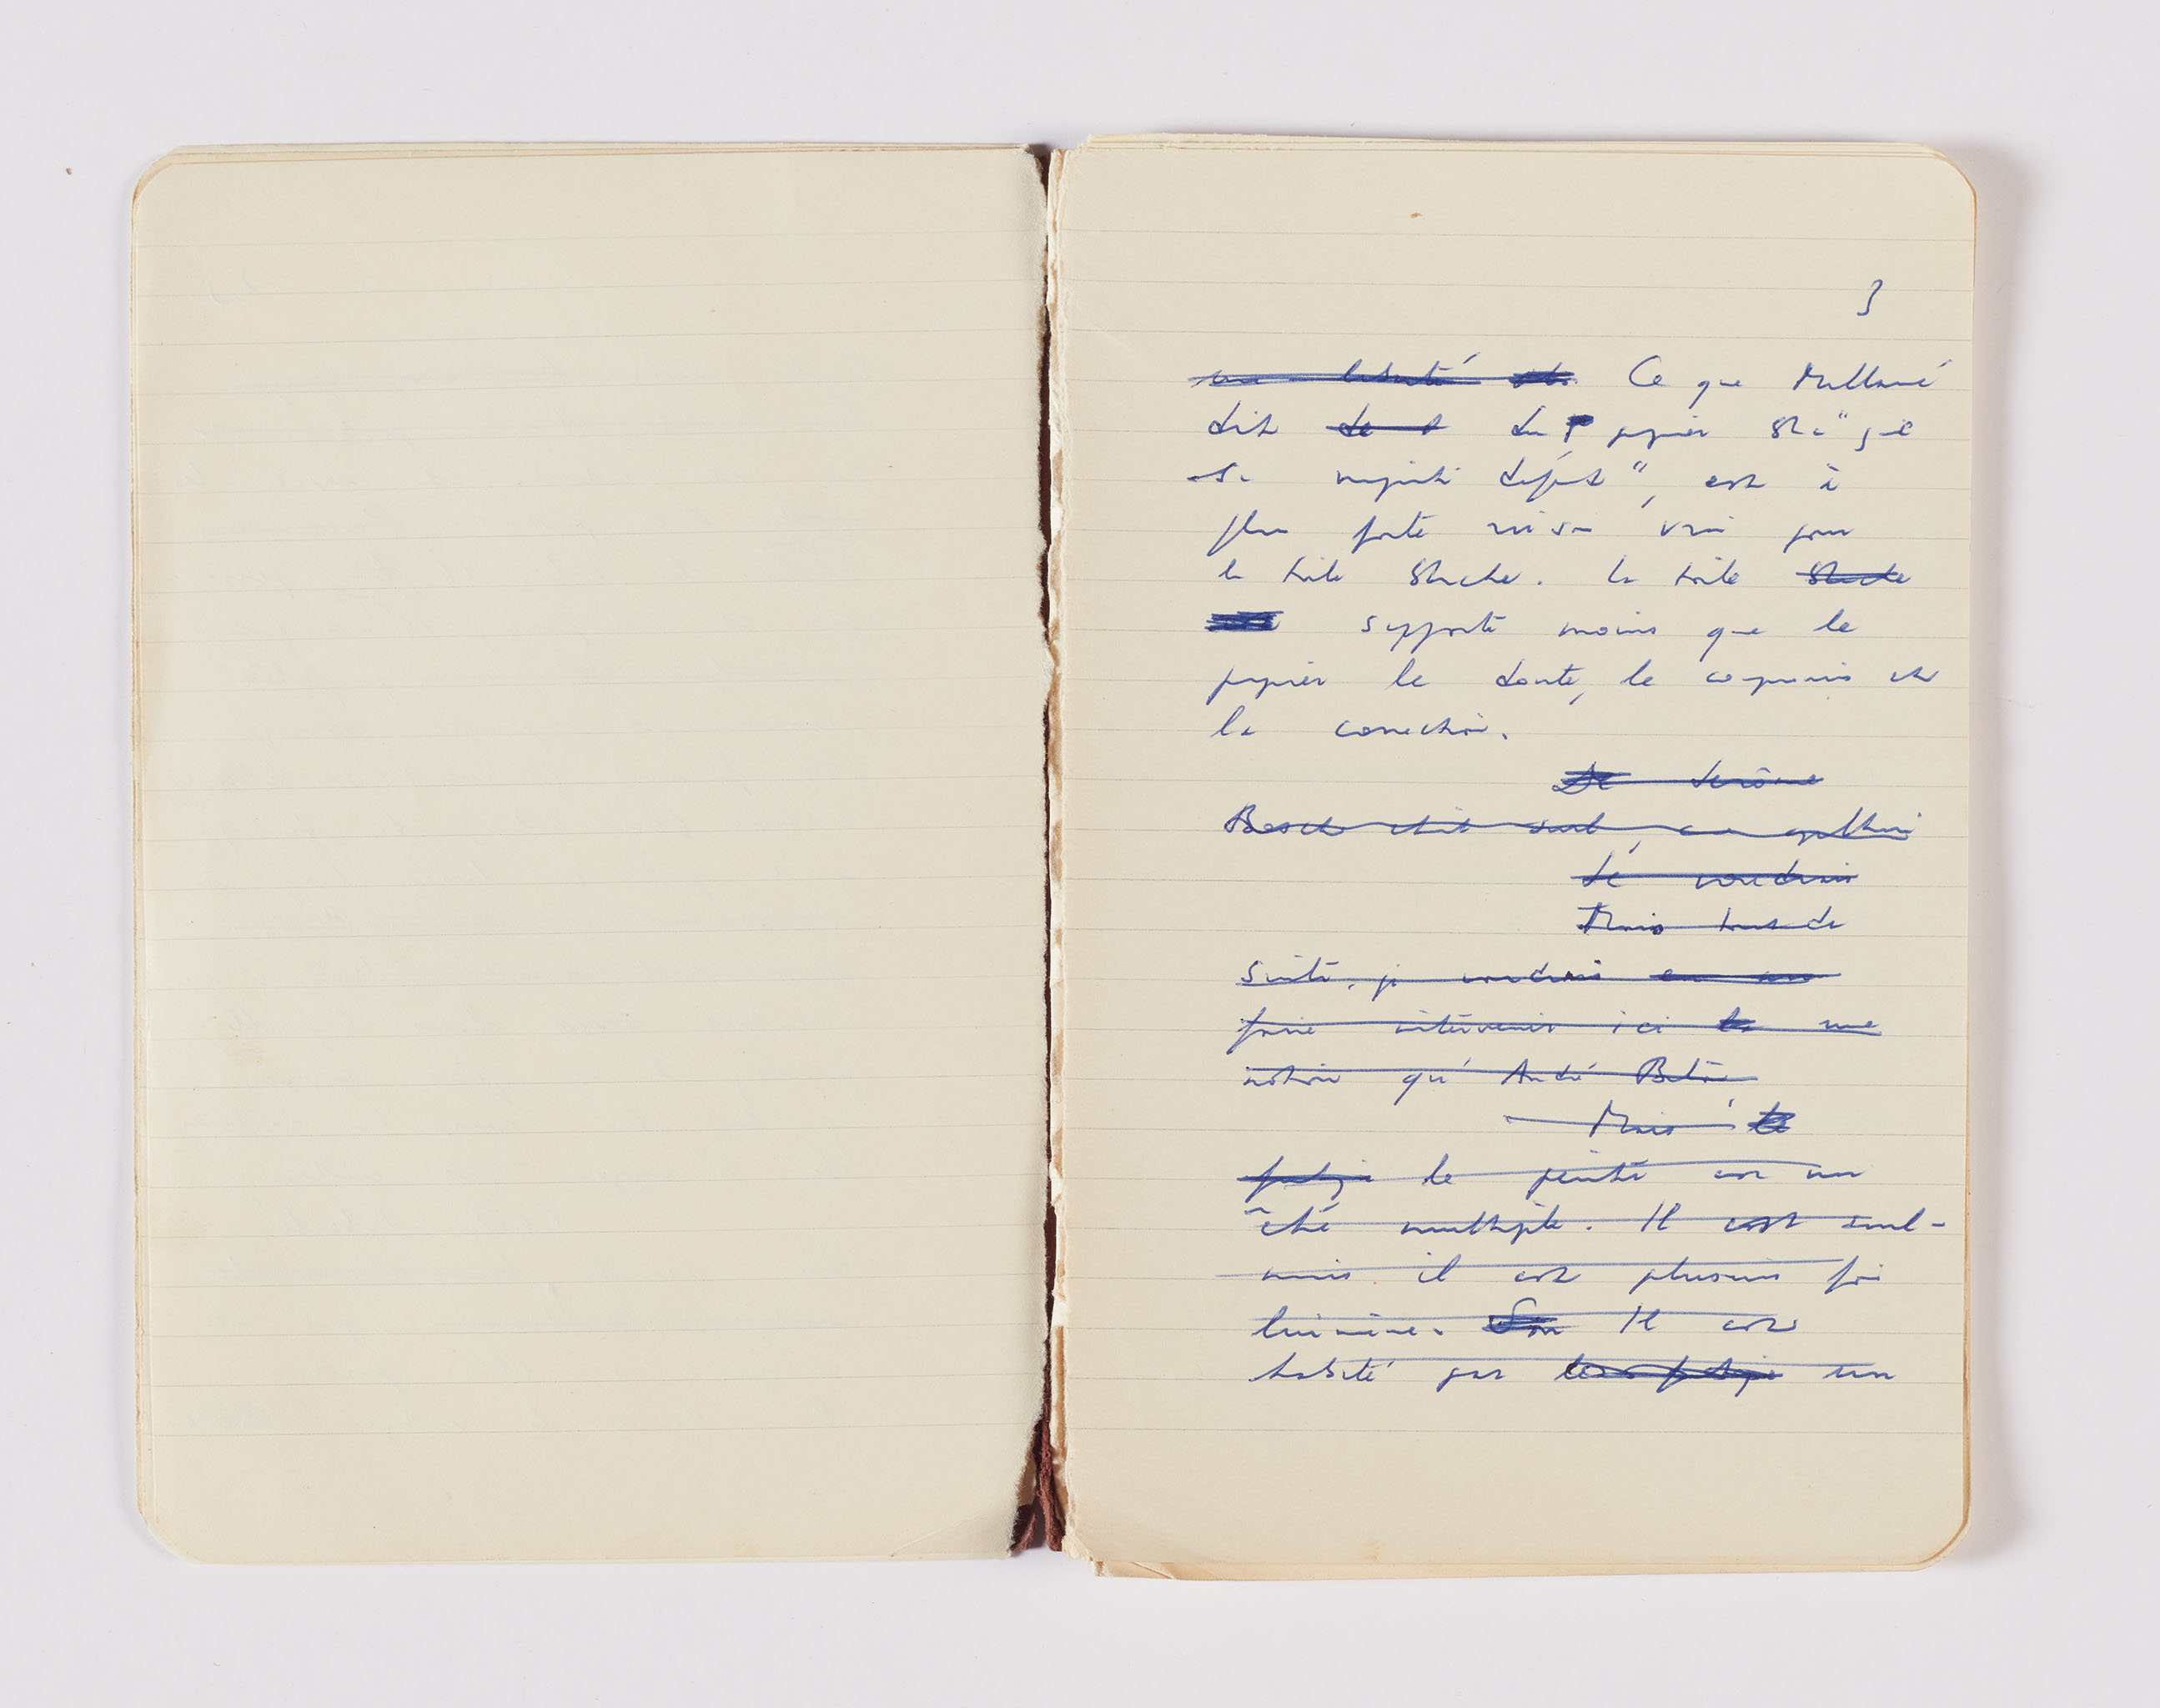 3
Ce que Mallarmé
dit du papier blanc "que
sa
défend", est à
plus forte raison vrai pour
la toile blanche. la toile blanche
supporte moins que le
papier le doute, le compromis et
la correction.
Jérôme
Bosch était seul
Je voudrais
Mais tout de
suite, je voudrais
faire intervenir ici une
notion qu' André Breton
Mais le
le peintre est un
être multiple. Il est seul -
mais il est plusieurs fois
lui-même. Son Il est
habité par un